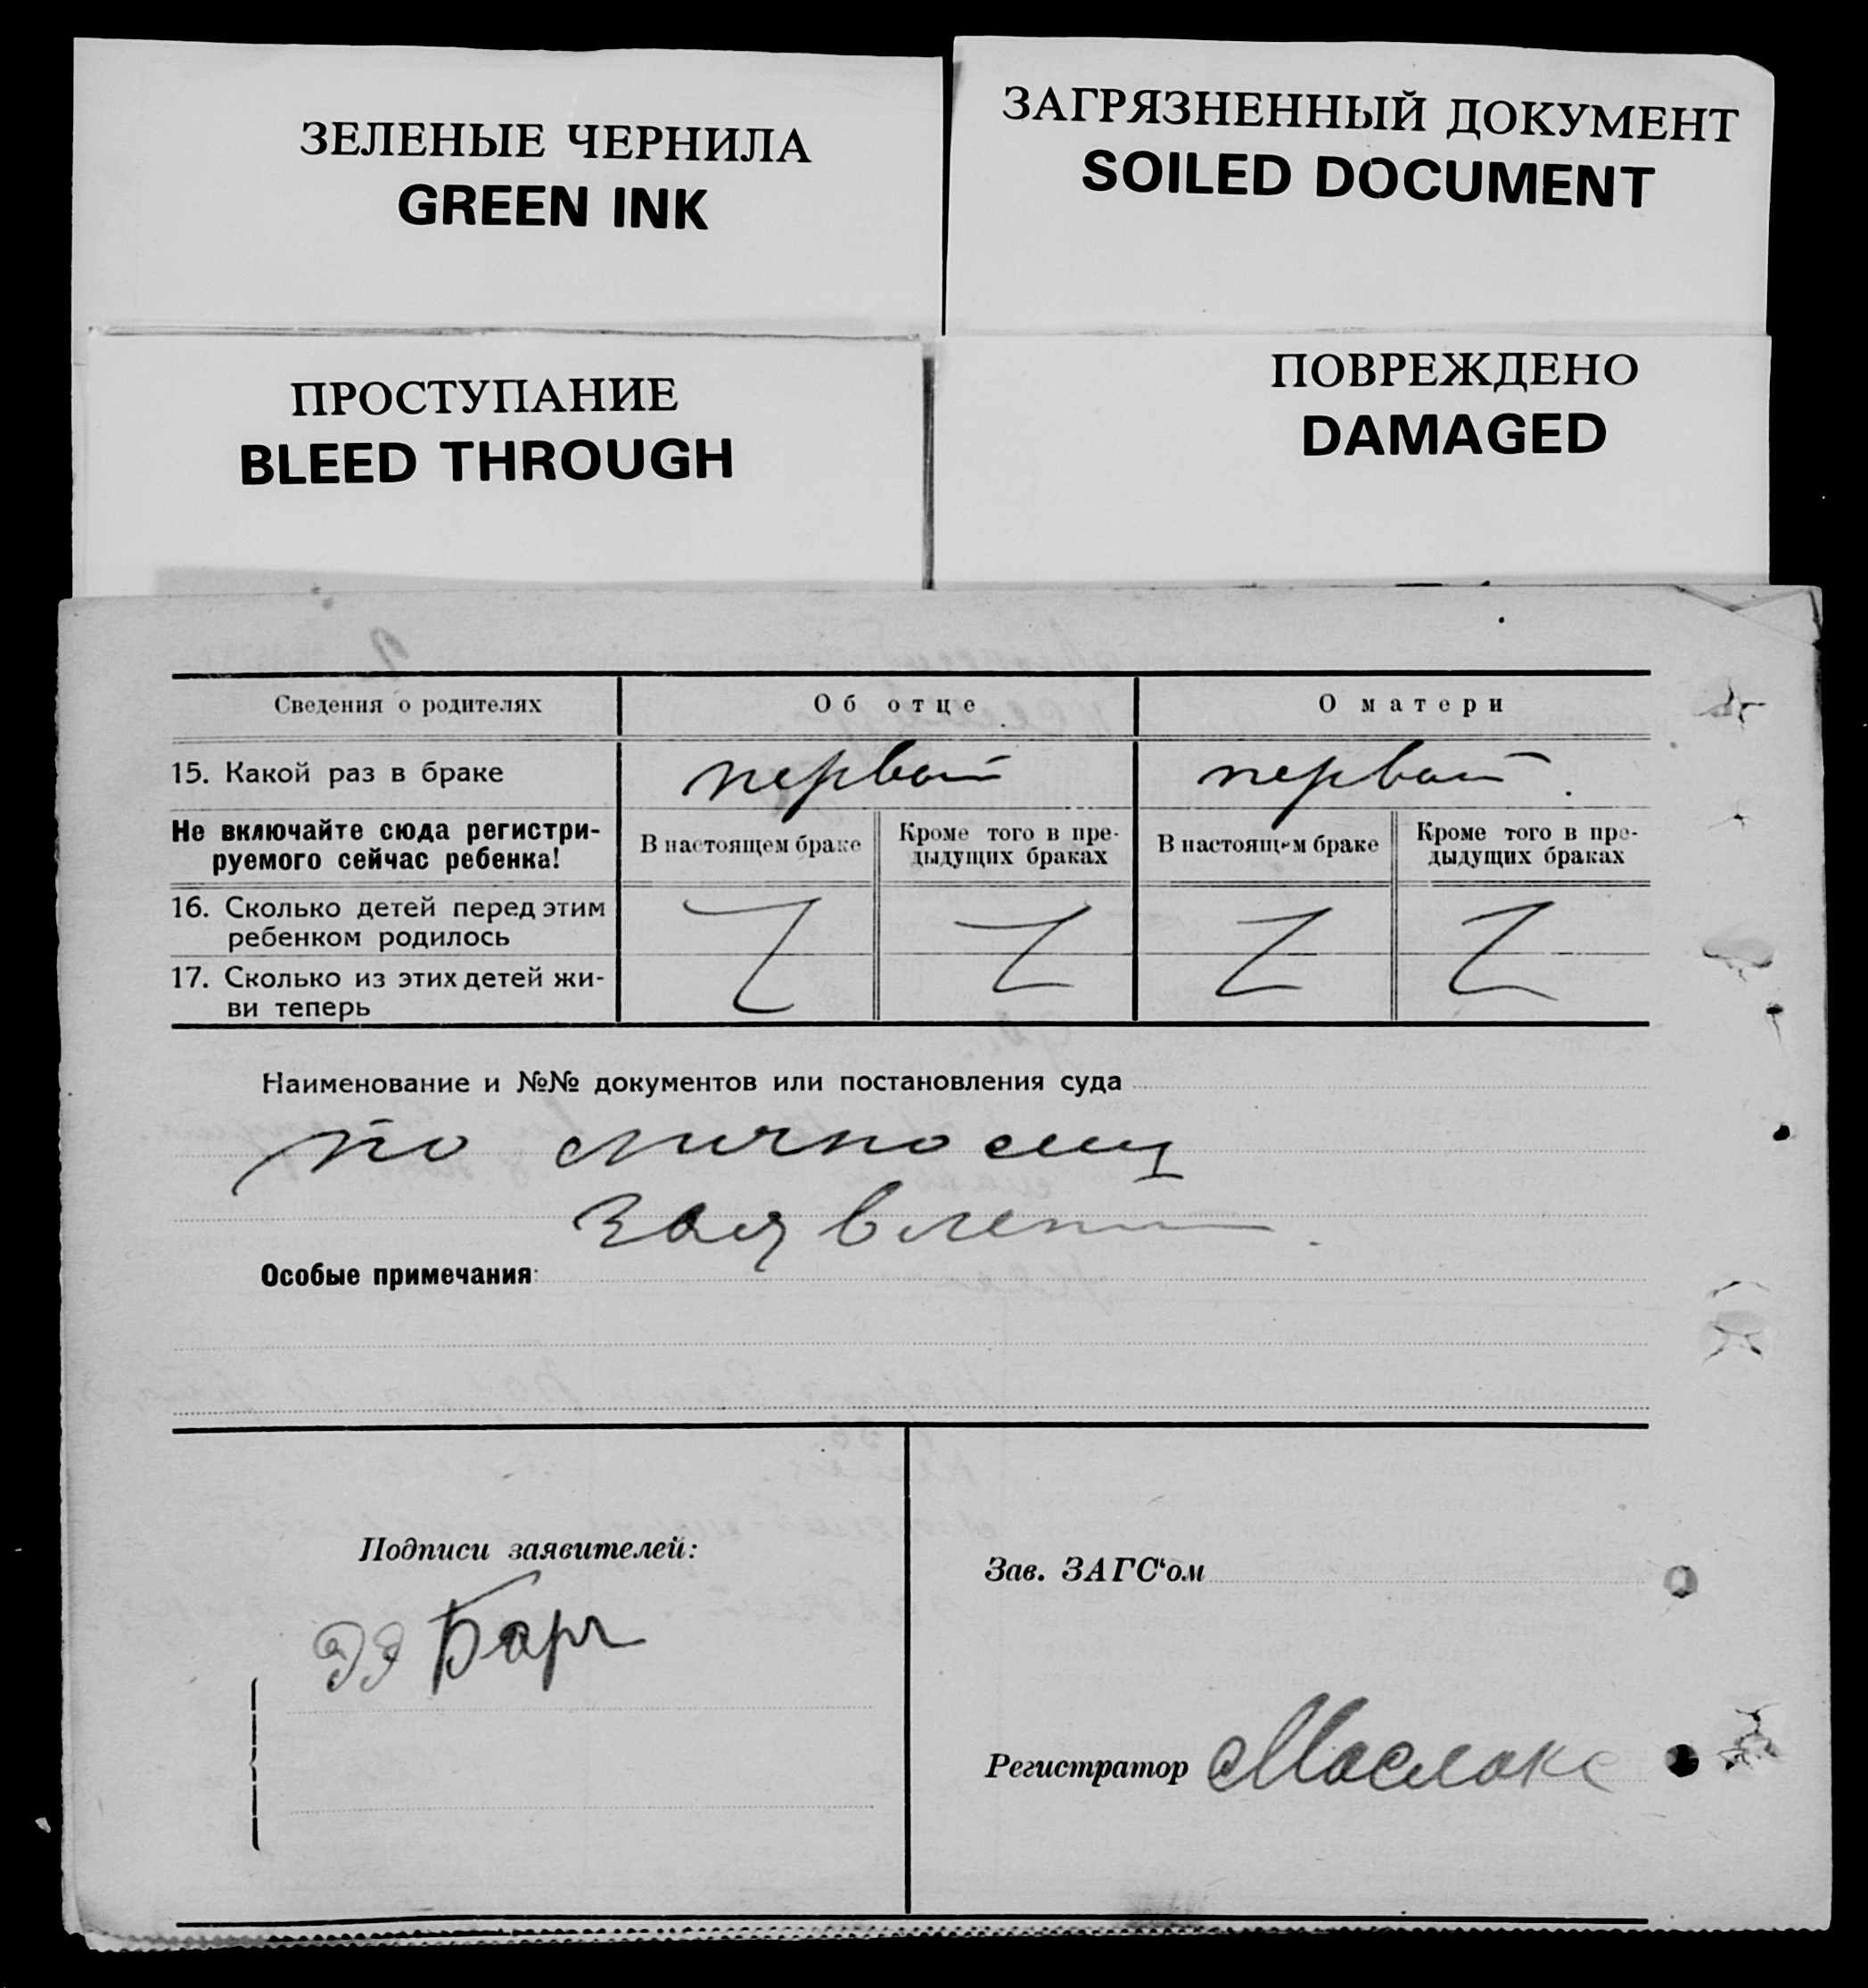 ЗЕЛЕНЫЕ ЧЕРНИЛА
GREEN INK
ЗАГРЯЗНЕННЫЙ ДОКУМЕНТ
SOILED DOCUMENT
ПРОСТУПАНИЕ
BLEED THROUGH
ПОВРЕЖДЕНО
DAMAGED
Сведения о родителях Об отце О матери
15. Какой раз в браке первый первый.
Не включайте сюда регистри-
руемого сейчас ребенка!
В настоящем браке
Кроме того в пре-
дыдущих браках
В настоящем браке
Кроме того в пре-
дыдущих браках
16. Сколько детей перед этим
ребенком родилось
17. Сколько из этих детей жи-
ви теперь
Наименование и №№ документов или постановления суда
по
Особые примечания:
Подписи заявителей:
Зав. ЗАГС'ом
Регистратор